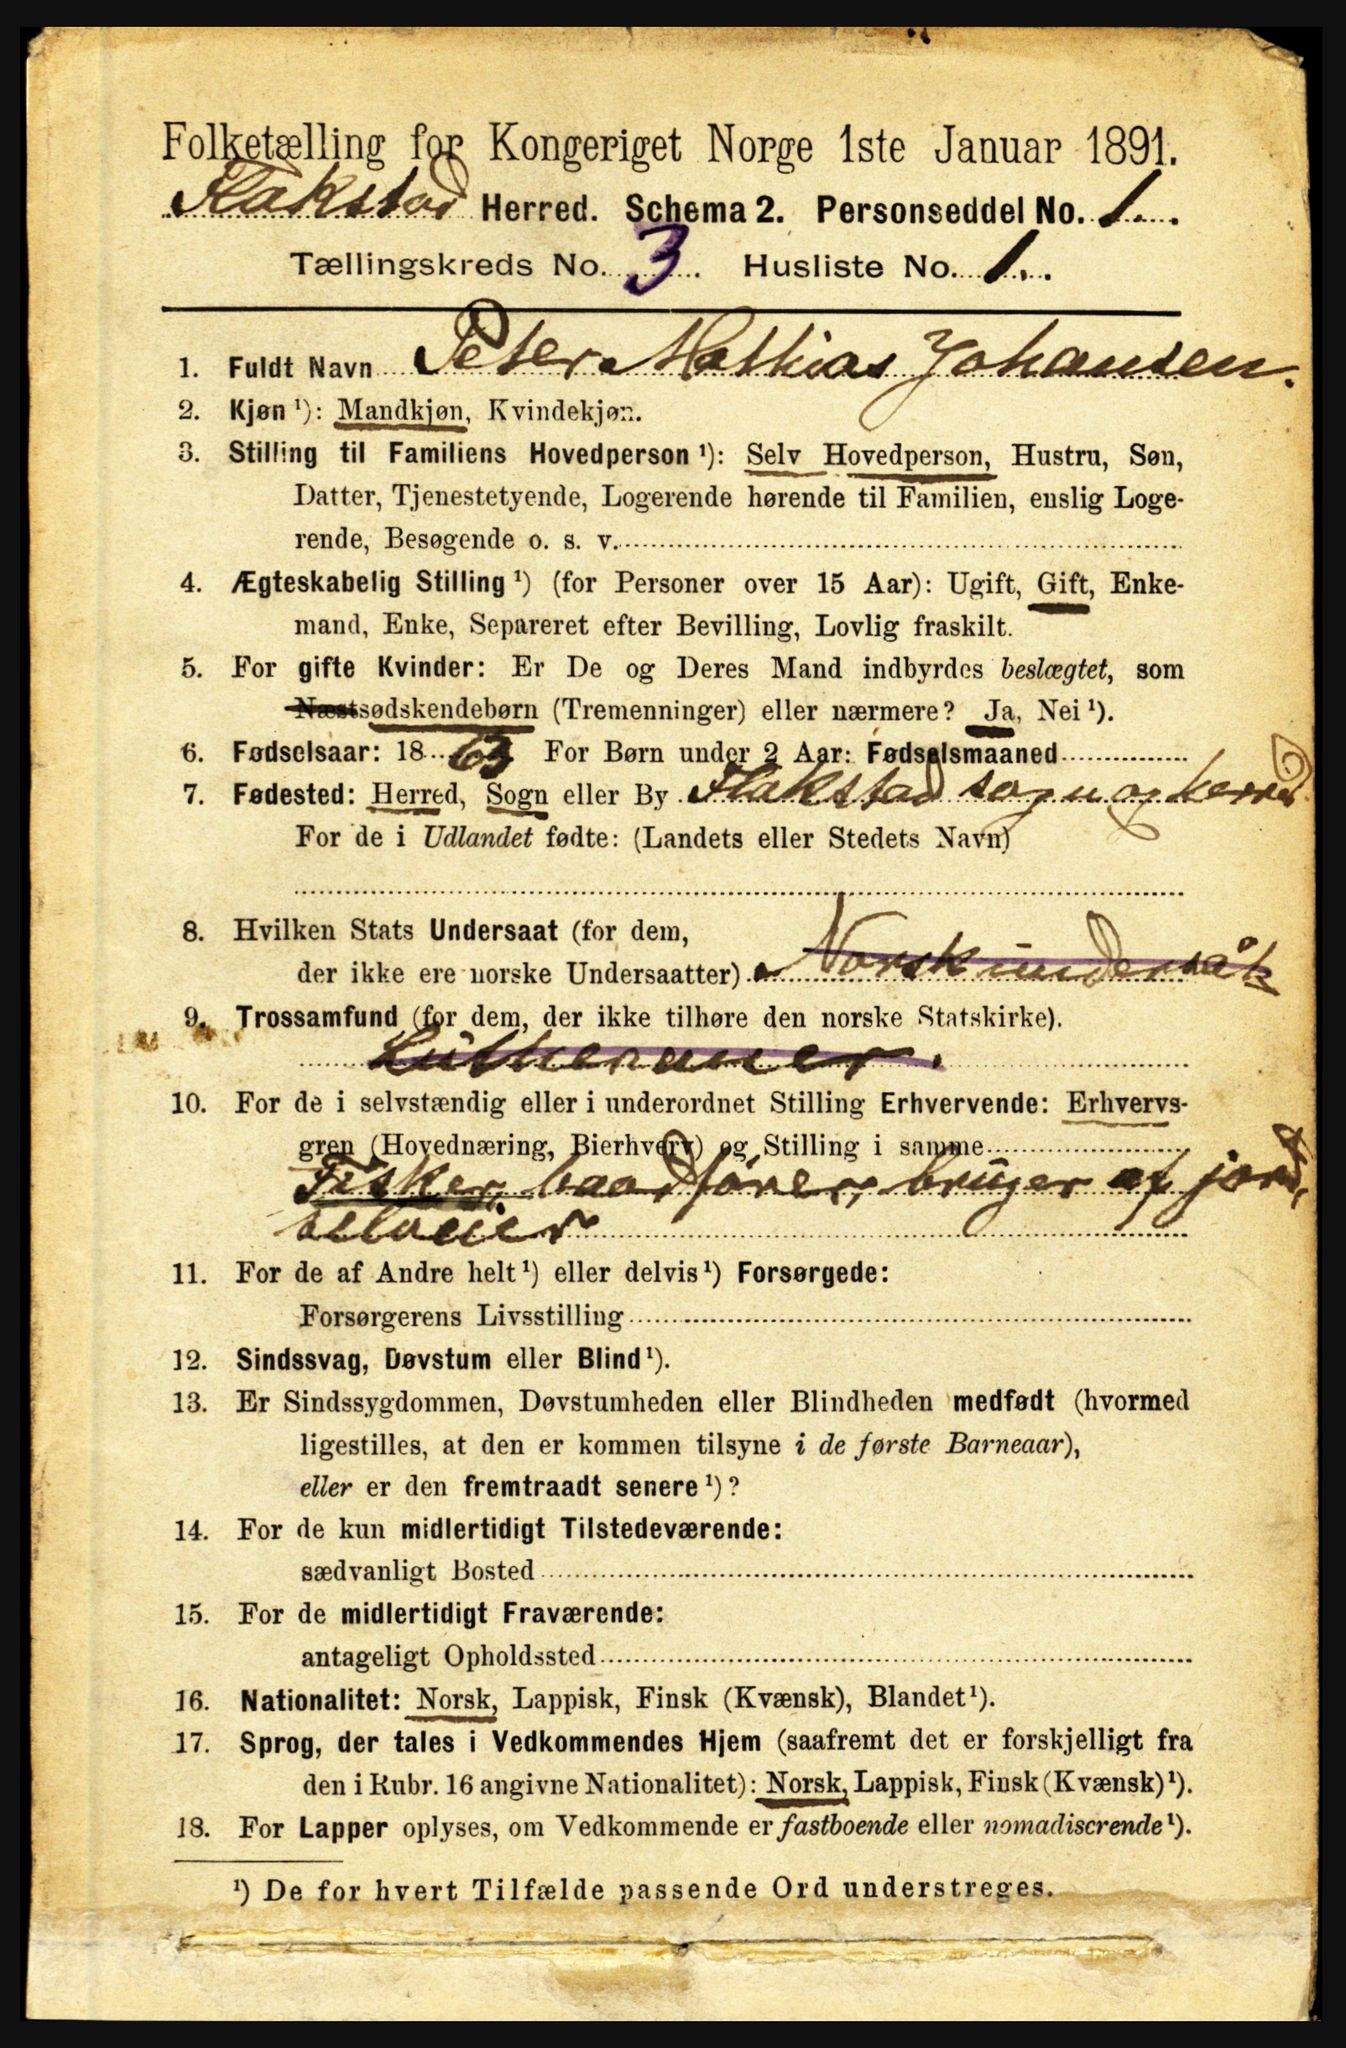 Folketælling for Kongeriget Norge 1ste Januar 1891.
Flakstad Herred. Schema 2. Personseddel No. 1.
Tællingskreds No. 3. Husliste No. 1.
1. Fuldt Navn Peter Mathias Johansen.
2. Kjøn ¹): Mandkjøn, Kvindekjøn.
3. Stilling til Familiens Hovedperson ¹): Selv Hovedperson, Hustru, Søn,
Datter, Tjenestetyende, Logerende hørende til Familien, enslig Loge-
rende, Besøgende o. s. v.
4. Ægteskabelig Stilling ¹) (for Personer over 15 Aar): Ugift, Gift, Enke-
mand, Enke, Separeret efter Bevilling, Lovlig fraskilt.
5. For gifte Kvinder: Er De og Deres Mand indbyrdes beslægtet, som
Næstsødskendebørn (Tremenninger) eller nærmere? Ja, Nei ¹).
6. Fødselsaar: 1863 For Børn under 2 Aar: Fødselsmaaned
7. Fødested: Herred, Sogn eller By Flakstad sogn og herred
For de i Udlandet fødte: (Landets eller Stedets Navn)
8. Hvilken Stats Undersaat (for dem,
der ikke ere norske Undersaatter) Norsk undersåt
9. Trossamfund (for dem, der ikke tilhøre den norske Statskirke).
Lutheraner.
10. For de i selvstændig eller i underordnet Stilling Erhvervende: Erhvervs-
gren (Hovednæring, Bierhverv) og Stilling i samme
Fisker, baadfører, bruger af jord,
selveier
11. For de af Andre helt ¹) eller delvis ¹) Forsørgede:
Forsørgerens Livsstilling
12. Sindssvag, Døvstum eller Blind ¹).
13. Er Sindssygdommen, Døvstumheden eller Blindheden medfødt (hvormed
ligestilles, at den er kommen tilsyne i de første Barneaar),
eller er den fremtraadt senere ¹)?
14. For de kun midlertidigt Tilstedeværende:
sædvanligt Bosted
15. For de midlertidigt Fraværende:
antageligt Opholdssted
16. Nationalitet: Norsk, Lappisk, Finsk (Kvænsk), Blandet ¹).
17. Sprog, der tales i Vedkommendes Hjem (saafremt det er forskjelligt fra
den i Rubr. 16 angivne Nationalitet): Norsk, Lappisk, Finsk (Kvænsk) ¹).
18. For Lapper oplyses, om Vedkommende er fastboende eller nomadiscrende ¹).
¹) De for hvert Tilfælde passende Ord understreges.